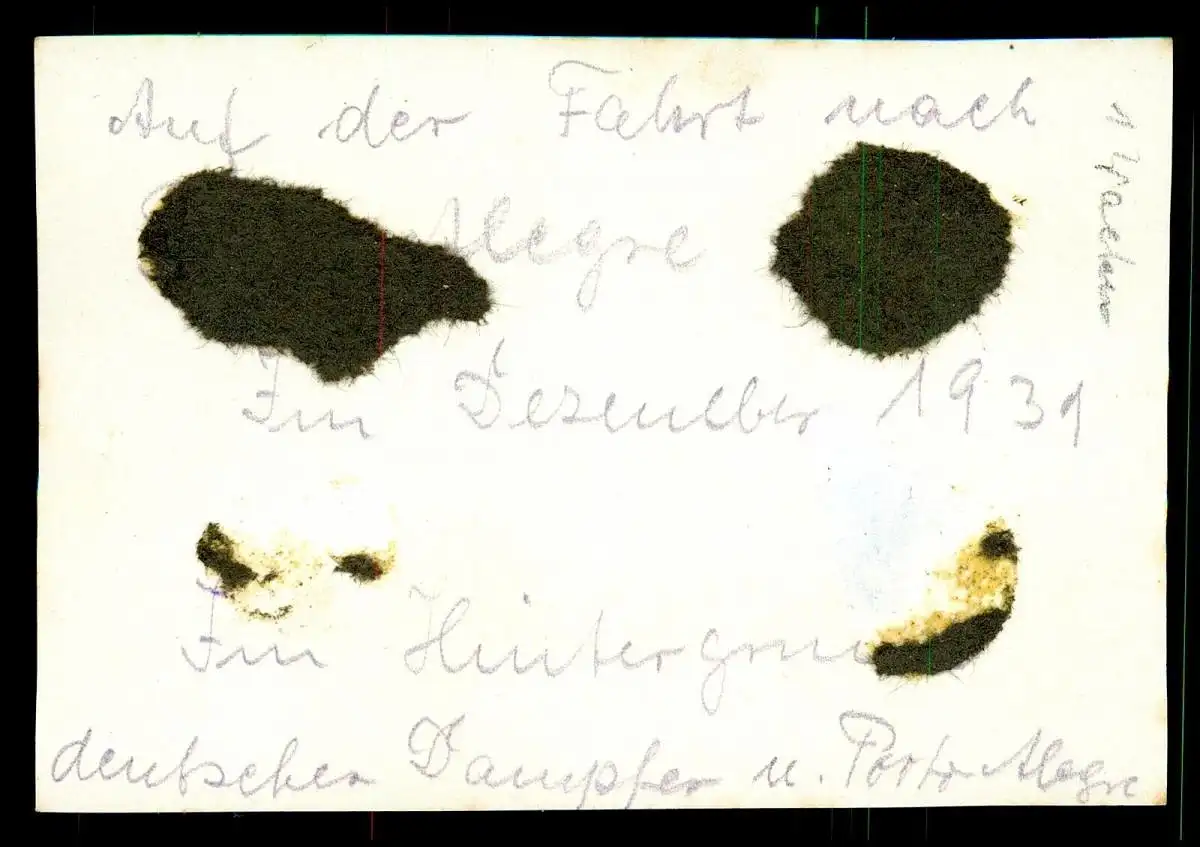 Auf der Fahrt nach
Alegre
Im Dezember 1931
Im Hintergrun
deutscher Dampfer u. Porto Alegre